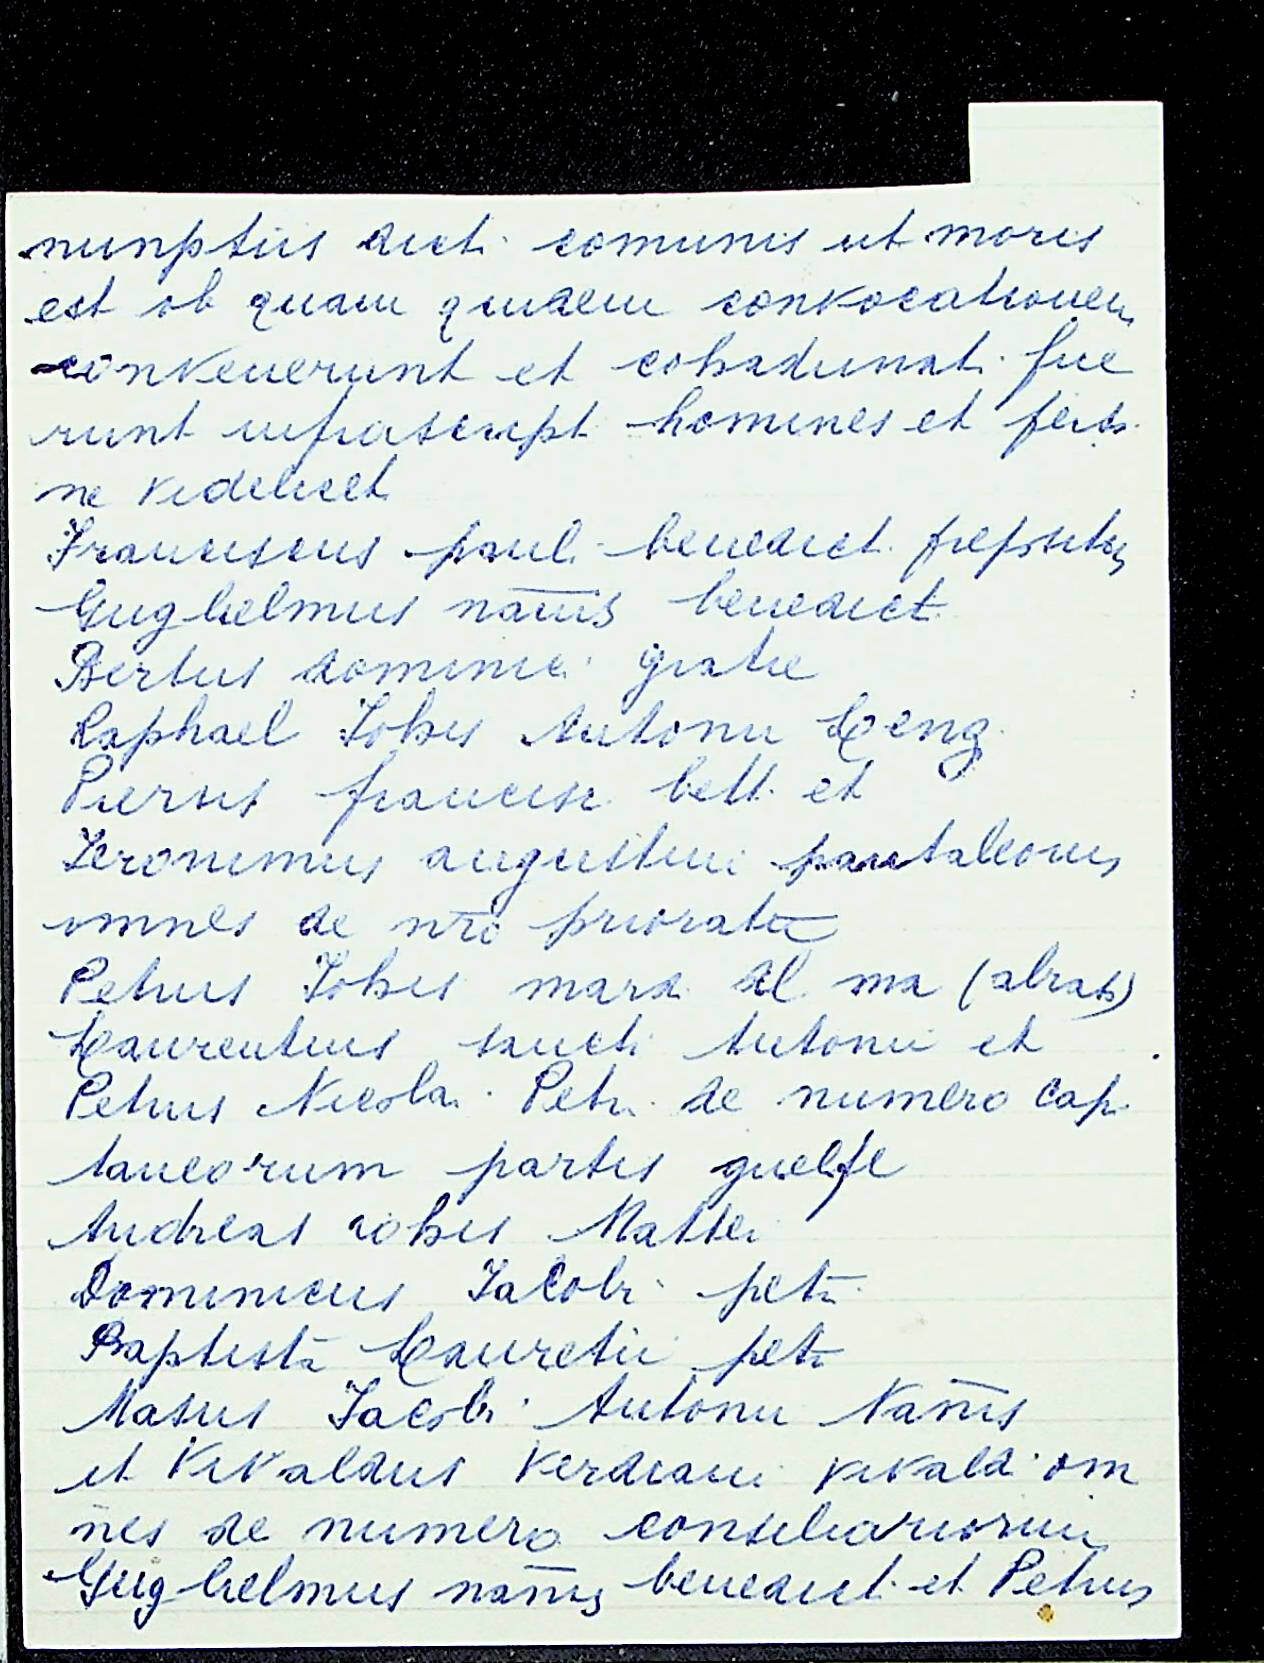 nunptiis dicti comunis ut moris
est ob quam quidem convocationem
convenerunt et cohadunati fue
runt infrascript homines et
ne videlicet
Franciscus pauli benedicti prepositus
Guglielmus nannis benedict
Bertus dominici gratie
Raphael Johis Antonii Leng
Pierus francisci bett et
Jeronimus augustini pantaleonis
omnes de nro prioratu
Petrus Johis mara al ma (abras)
Laurentius sancti Antonii et
Petrus Nicolai Petri de numero cap
taneorum partis guelfe
Andreas iohis Mattei
Dominicus Jacobi petri
Baptista Lauretii petri
Masus Jacobi Antonii Nannis
et Vivaldus Verdiani vivaldi om
nes de numero consiliariorum
Guglielmus nannis benedict et Petrus